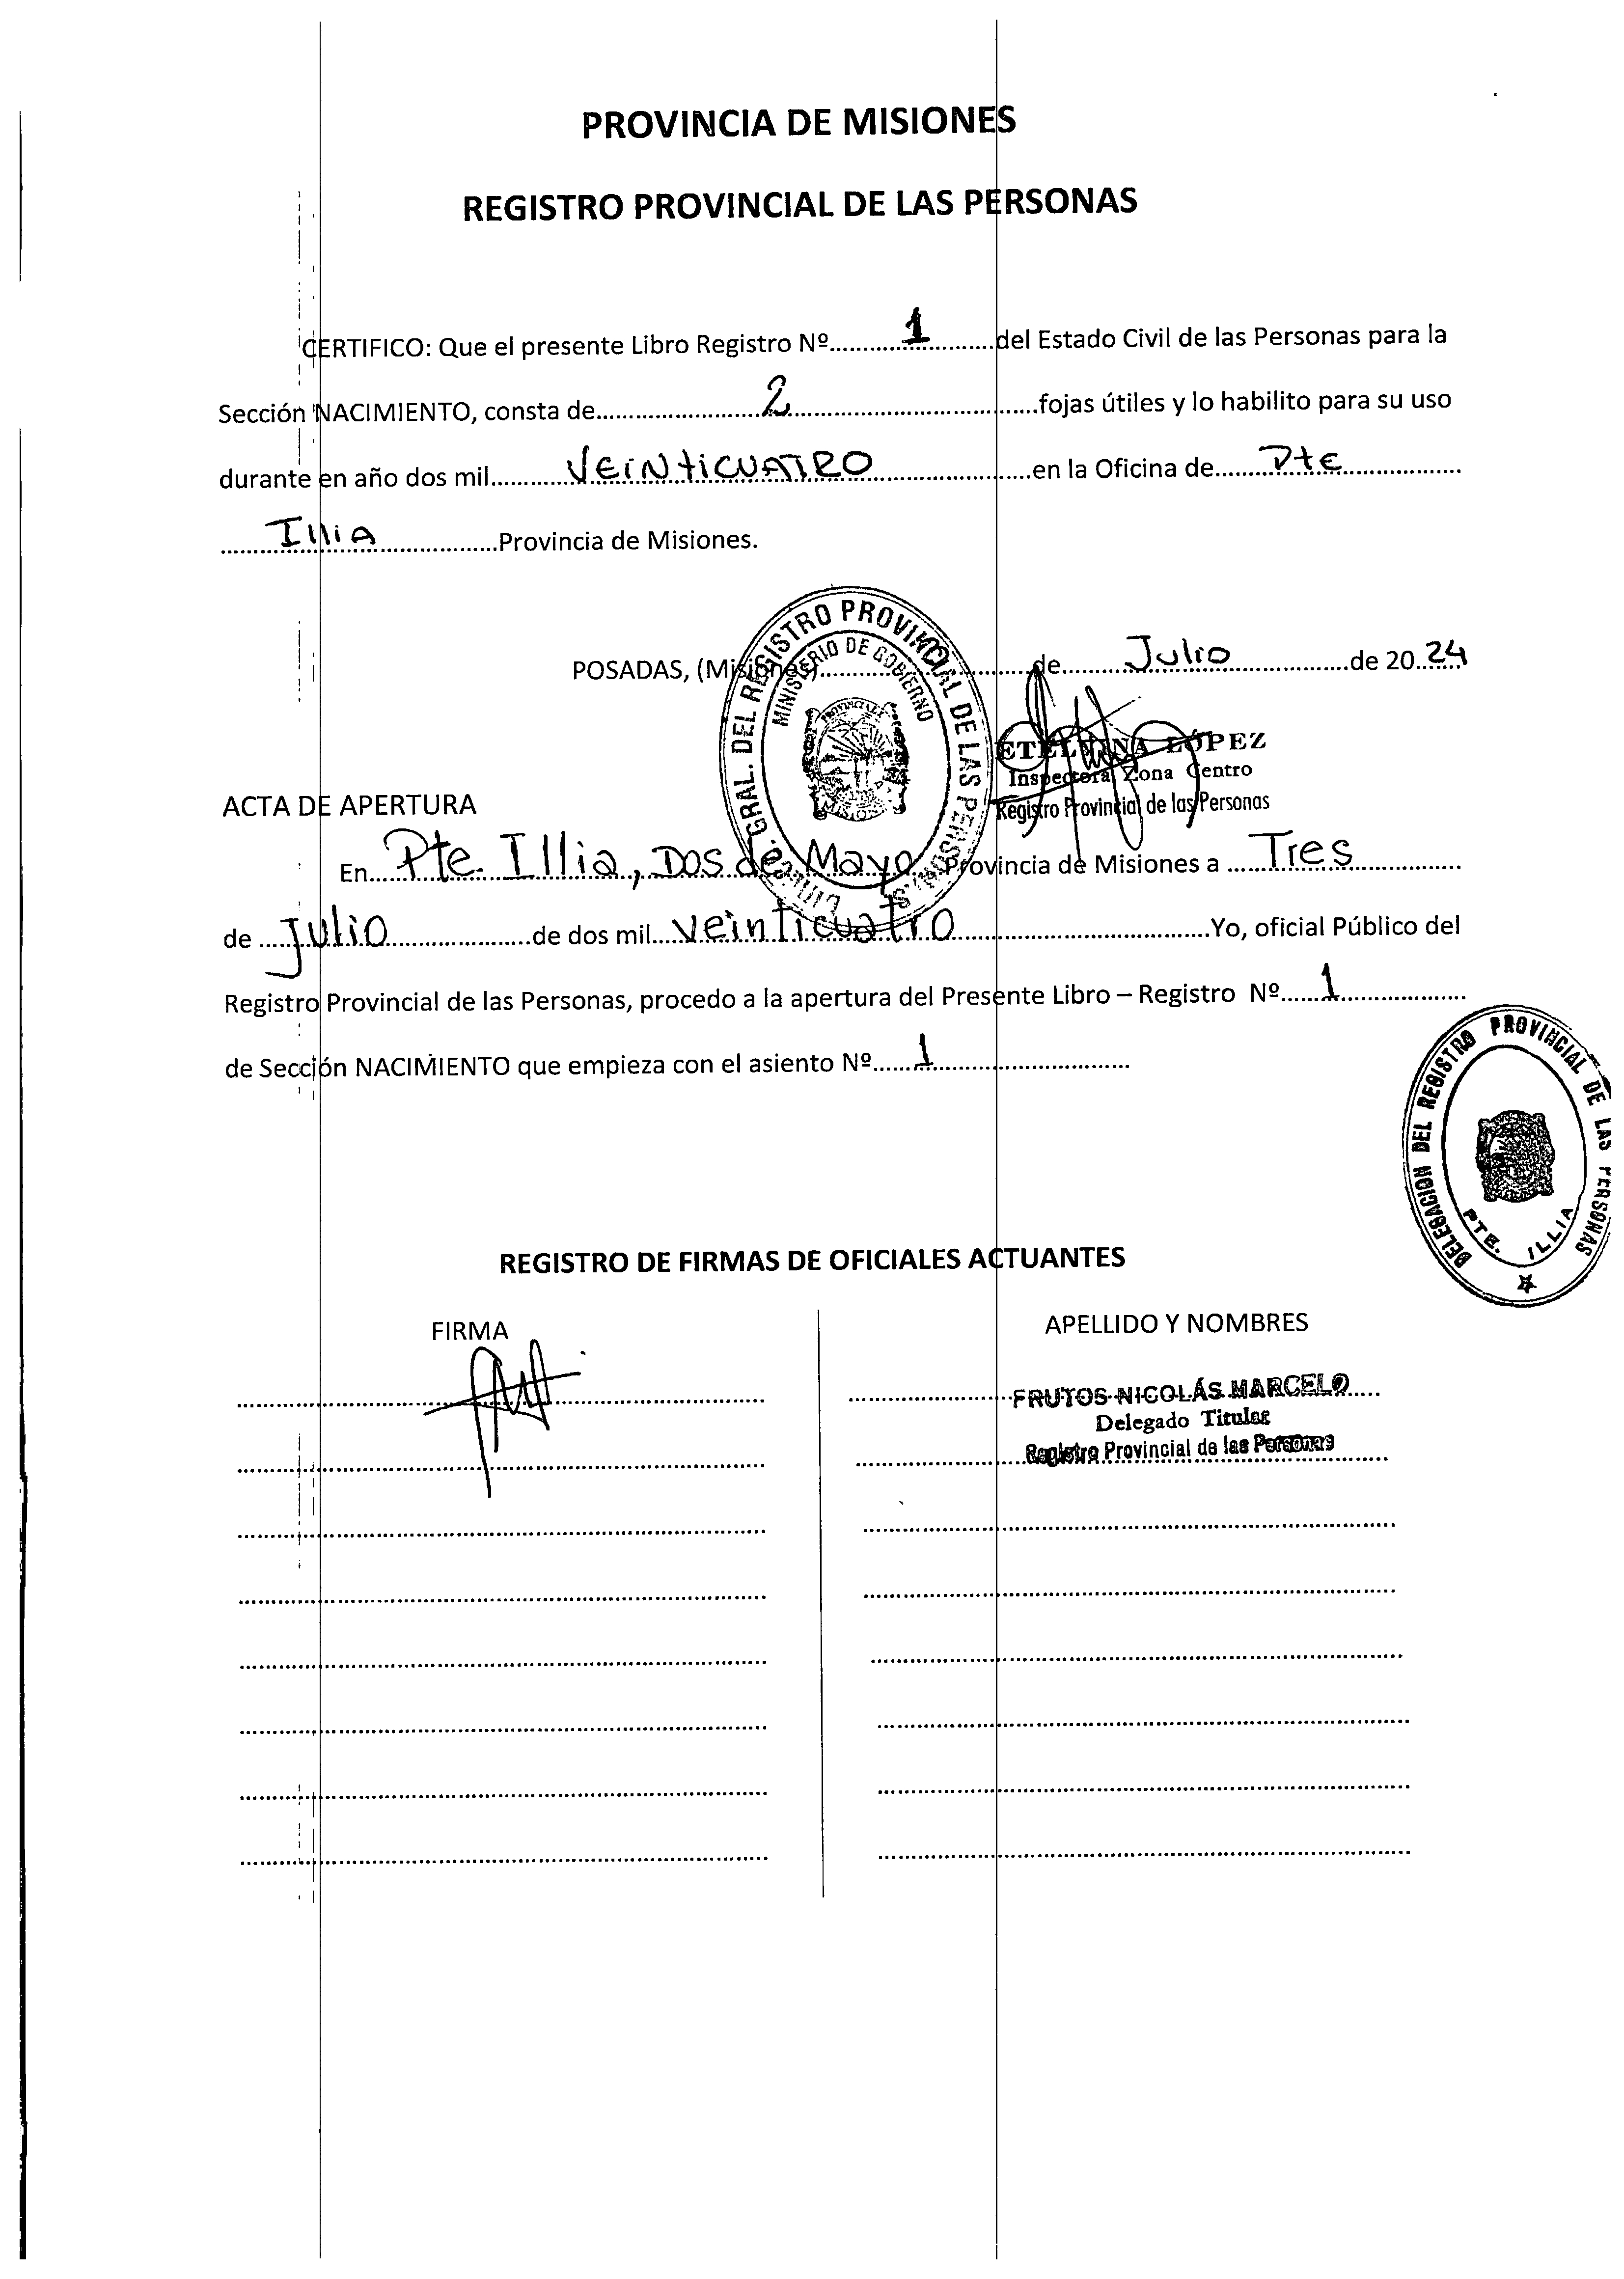 PROVINCIA DE MISIONES
REGISTRO PROVINCIAL DE LAS PERSONAS
CERTIFICO: Que el presente Libro Registro Nº 1 del Estado Civil de las Personas para la
Sección NACIMIENTO, consta de 2 fojas útiles y lo habilito para su uso
durante en año dos mil VEINTICUATRO en la Oficina de Pte
Illia Provincia de Misiones.
POSADAS, (Misiones) de Julio de 2024
DIRECC. GRAL. DEL REGISTRO PROVINCIAL DE LAS PERSONAS
MINISTERIO DE GOBIERNO
ETELVINA LÓPEZ
Inspectora Zona Centro
Registro Provincial de las Personas
ACTA DE APERTURA
En Pte. Illia, Dos de Mayo Provincia de Misiones a Tres
de Julio de dos mil veinticuatro Yo, oficial Público del
Registro Provincial de las Personas, procedo a la apertura del Presente Libro – Registro Nº 1
de Sección NACIMIENTO que empieza con el asiento Nº 1
DELEGACION DEL REGISTRO PROVINCIAL DE LAS PERSONAS
PTE. ILLIA
REGISTRO DE FIRMAS DE OFICIALES ACTUANTES
FIRMA APELLIDO Y NOMBRES
FRUTOS NICOLÁS MARCELO
Delegado Titular
Registro Provincial de las Personas